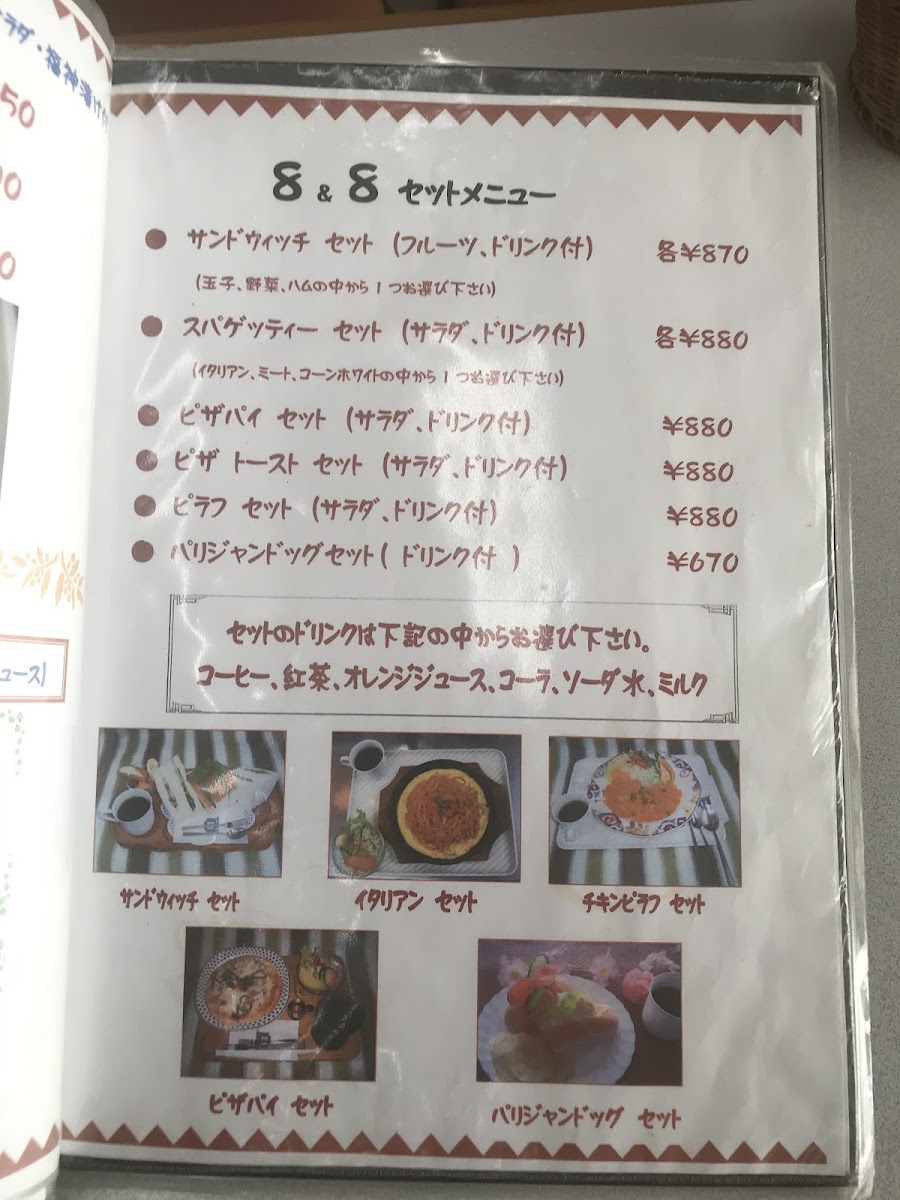 ラダ・福神漬け付
50
00
0
ュース)
8 & 8 セットメニュー
● サンドウィッチ セット (フルーツ、ドリンク付) 各¥870
(玉子、野菜、ハムの中から1つお選び下さい)
● スパゲッティー セット (サラダ、ドリンク付) 各¥880
(イタリアン、ミート、コーンホワイトの中から1つお選び下さい)
● ピザパイ セット (サラダ、ドリンク付) ¥880
● ピザ トースト セット (サラダ、ドリンク付) ¥880
● ピラフ セット (サラダ、ドリンク付) ¥880
● パリジャンドッグセット( ドリンク付 ) ¥670
セットのドリンクは下記の中からお選び下さい。
コーヒー、紅茶、オレンジジュース、コーラ、ソーダ水、ミルク
サンドウィッチ セット
イタリアン セット
チキンピラフ セット
ピザパイ セット
パリジャンドッグ セット